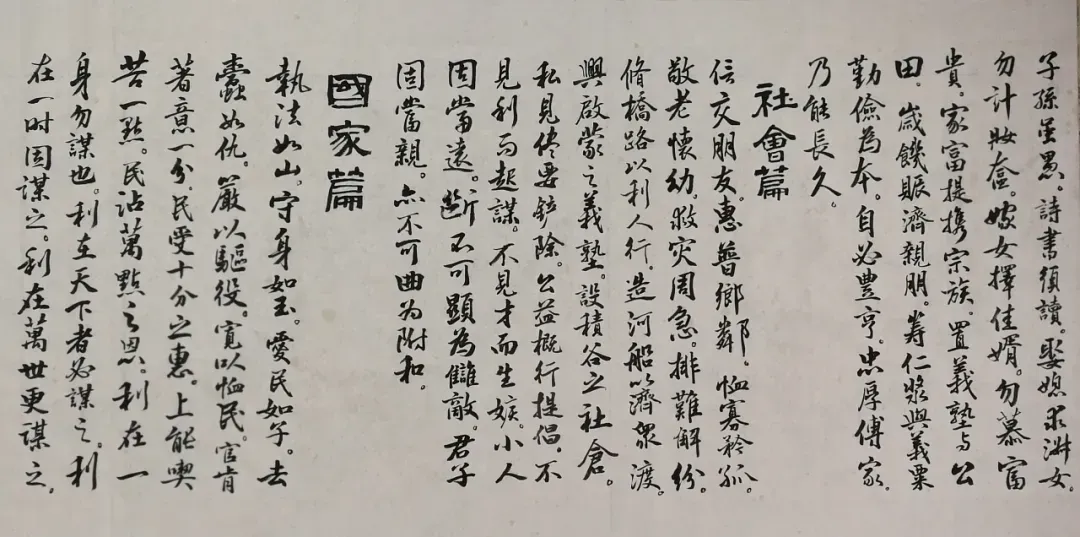 子孫虽愚。詩書須讀。娶媳求淑女。
勿計妝奩。嫁女擇佳婿。勿慕富
貴。家富提攜宗族。置義塾与公
田。歲饑賑濟親朋。筹仁漿與義粟
勤儉為本。自必豐亨。忠厚傅家。
乃能長久。
社會篇
信交朋友。惠普鄉鄰。恤寡矜孤。
敬老懷幼。救灾周急。排難解紛。
脩橋路以利人行。造河船以濟衆渡。
興啟蒙之義塾。設積谷之社倉。
私見儘要鏟除。公益概行提倡。不
見利而起謀。不見才而生嫉。小人
固當遠。斷不可顯為讎敵。君子
固當親。亦不可曲为附和。
國家篇
執法如山。守身如玉。愛民如子。去
蠹如仇。嚴以驅役。寬以恤民。官肯
著意一分。民受十分之惠。上能喫
苦一點。民沾萬點之恩。利在一
身勿謀也。利在天下者必謀之。利
在一时固謀之。利在萬世更謀之。